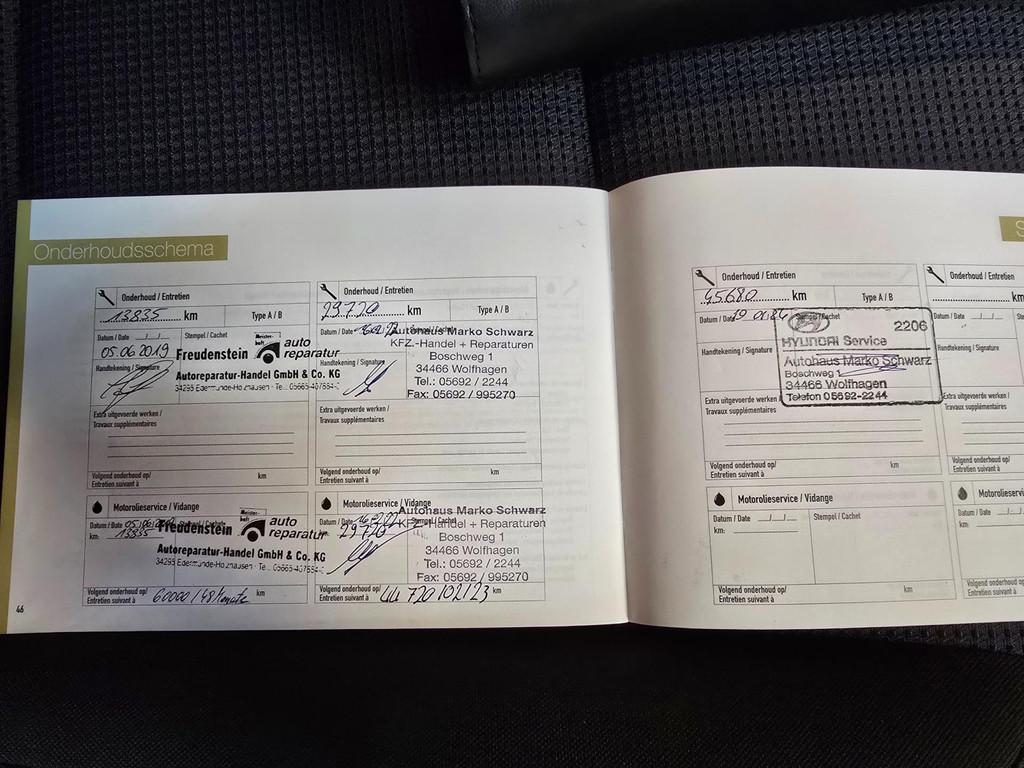 Onderhoudsschema
Onderhoud / Entretien
13835 km
Type A / B
Datum / Date
Stempel / Cachet
05.06.2019
Meister-
haft
auto
reparatur
Freudenstein
Handtekening / Signature
Autoreparatur-Handel GmbH & Co. KG
Extra uitgevoerde werken /
Travaux supplémentaires
Volgend onderhoud op/
Entretien suivant à
km
Motorolieservice / Vidange
Datum / Date
km: 13835
Meister-
haft
auto
reparatur
Freudenstein
Autoreparatur-Handel GmbH & Co. KG
Volgend onderhoud op/
Entretien suivant à
km
46
Onderhoud / Entretien
29.720 km
Type A / B
Datum / Date
Autohaus Marko Schwarz
KFZ.-Handel + Reparaturen
Boschweg 1
34466 Wolfhagen
Tel.: 05692 / 2244
Fax: 05692 / 995270
Handtekening / Signature
Extra uitgevoerde werken /
Travaux supplémentaires
Volgend onderhoud op/
Entretien suivant à
km
Motorolieservice / Vidange
Datum / Date
km: 29720
Autohaus Marko Schwarz
KFZ.-Handel + Reparaturen
Boschweg 1
34466 Wolfhagen
Tel.: 05692 / 2244
Fax: 05692 / 995270
Volgend onderhoud op/
Entretien suivant à
km
Onderhoud / Entretien
45.680 km
Type A / B
Datum / Date
Stempel / Cachet
2206
HYUNDAI Service
Autohaus Marko Schwarz
Boschweg 1
34466 Wolfhagen
Telefon 05692-2244
Handtekening / Signature
Extra uitgevoerde werken /
Travaux supplémentaires
Volgend onderhoud op/
Entretien suivant à
km
Motorolieservice / Vidange
Datum / Date
Stempel / Cachet
km:
Volgend onderhoud op/
Entretien suivant à
km
S
Onderhoud / Entretien
km
Datum / Date
Handtekening / Signature
Extra uitgevoerde werken /
Travaux supplémentaires
Volgend onderhoud op/
Entretien suivant à
Motorolieservi
Datum / Date
km:
Volgend onderhoud op/
Entretien suivant à